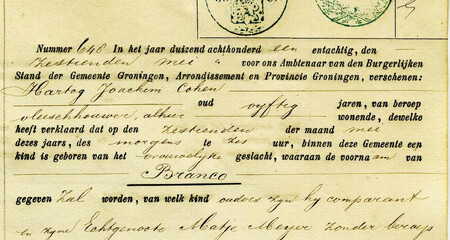 Nummer 648 In het jaar duizend achthonderd een entachtig, den
zestienden mei voor ons Ambtenaar van den Burgerlijken
Stand der Gemeente Groningen, Arrondissement en Provincie Groningen, verschenen:
Hartog Joachim Cohen
oud vyftig jaren, van beroep
vleeschhouwer, alhier wonende, dewelke
heeft verklaard dat op den zestienden der maand mei
dezes jaars, des morgens te zes uur, binnen deze Gemeente een
kind is geboren van het vrouwelijke geslacht, waaraan de voornaam van
Branco
gegeven zal worden, van welk kind ouders zyn hy comparant
en zyne Echtgenoote Matje Meyer zonder beroep